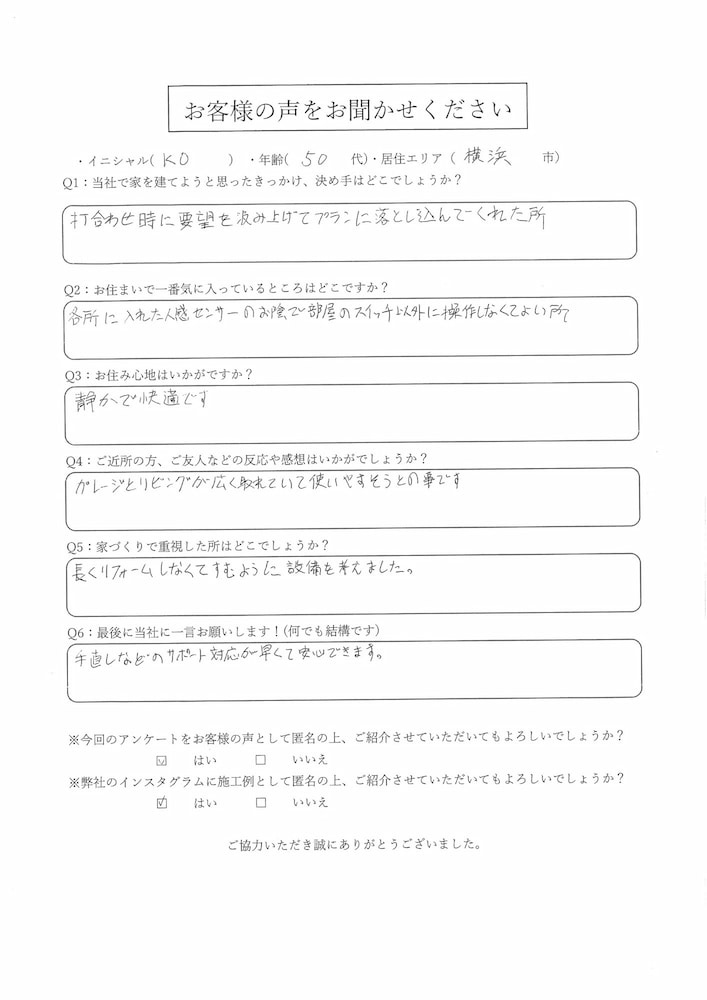 お客様の声をお聞かせください
・イニシャル( KO ) ・年齢( 50 代)・居住エリア ( 横浜 市)
Q1：当社で家を建てようと思ったきっかけ、決め手はどこでしょうか？
打合わせ時に要望を汲み上げてプランに落とし込んでくれた所
Q2：お住まいで一番気に入っているところはどこですか？
各所に入れた人感センサーのお陰で部屋のスイッチ以外に操作しなくてよい所
Q3：お住み心地はいかがですか？
静かで快適です
Q4：ご近所の方、ご友人などの反応や感想はいかがでしょうか？
ガレージとリビングが広く取れていて使いやすそうとの事です
Q5：家づくりで重視した所はどこでしょうか？
長くリフォームしなくてすむように設備を考えました。
Q6：最後に当社に一言お願いします！(何でも結構です)
手直しなどのサポート対応が早くて安心できます。
※今回のアンケートをお客様の声として匿名の上、ご紹介させていただいてもよろしいでしょうか？
☑ はい □ いいえ
※弊社のインスタグラムに施工例として匿名の上、ご紹介させていただいてもよろしいでしょうか？
☑ はい □ いいえ
ご協力いただき誠にありがとうございました。